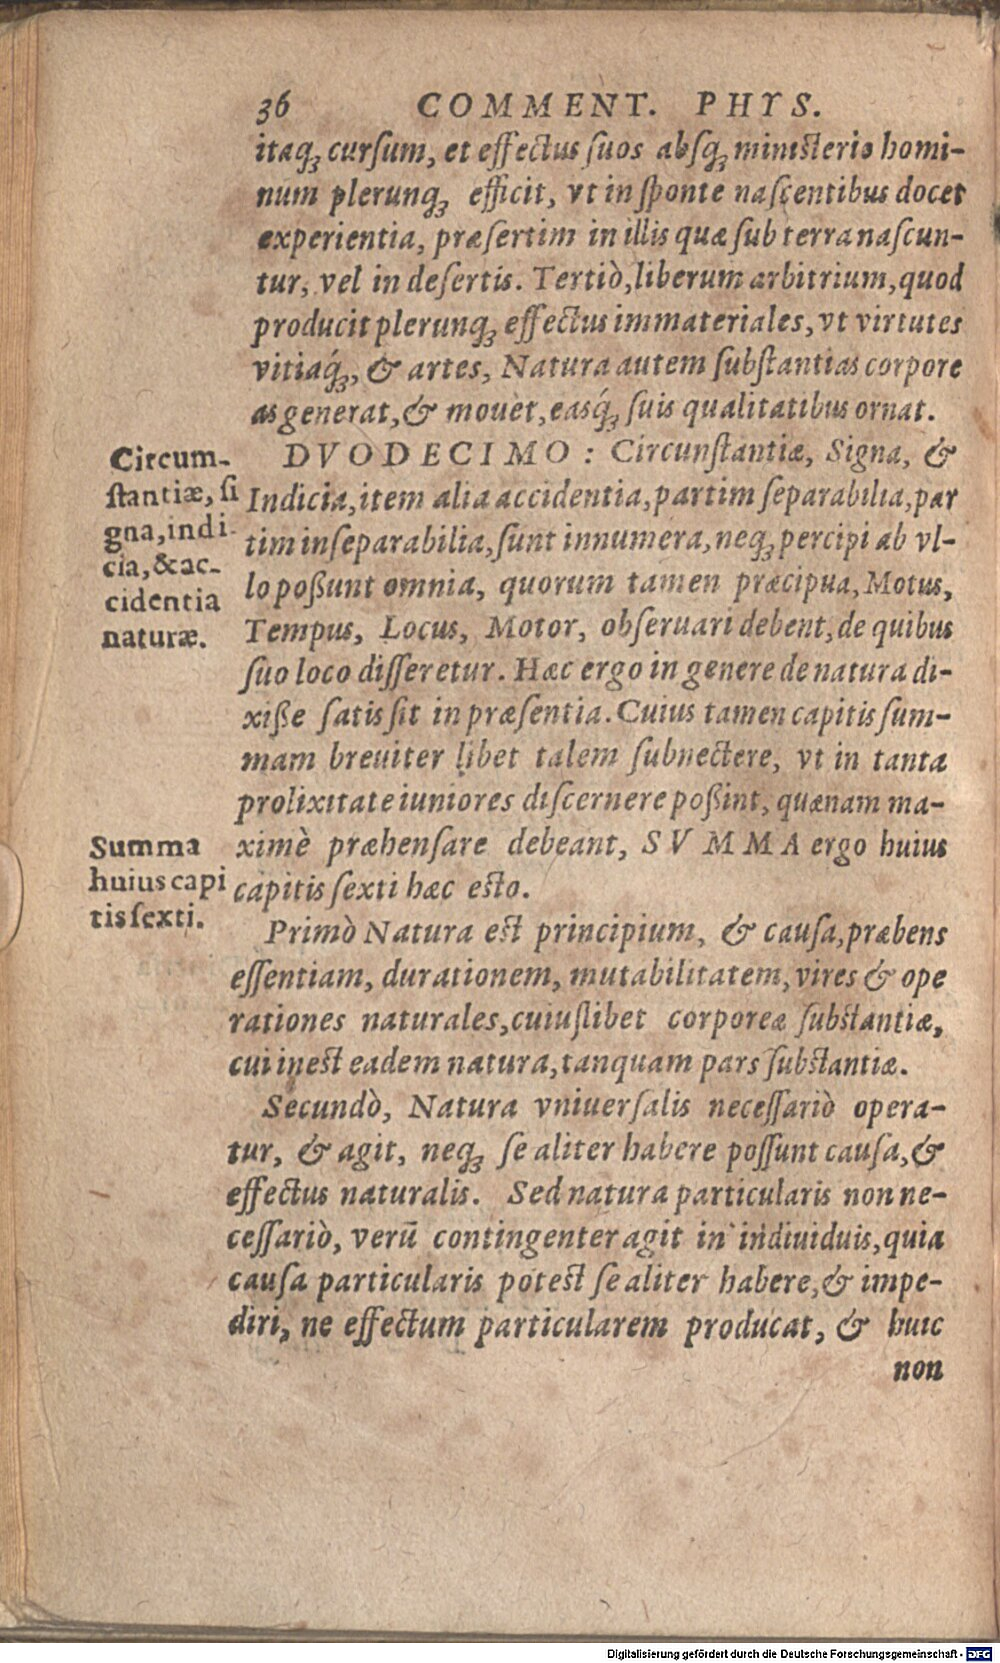 36 COMMENT. PHYS.
itaq́ꝫ cursum, et effectus suos absq́ꝫ ministerio homi-
num plerunq́ꝫ efficit, vt in sponte nascentibus docet
experientia, præsertim in illis quæ sub terra nascun-
tur, vel in desertis. Tertiò, liberum arbitrium, quod
producit plerunq́ꝫ effectus immateriales, vt virtutes
vitiaq́ꝫ, & artes, Natura autem substantias corpore
as generat, & mouet, easq́ꝫ suis qualitatibus ornat.
Circum-
stantiæ, si
gna, indi-
cia, & ac-
cidentia
naturæ.
DVODECIMO: Circunstantiæ, Signa, &
Indicia, item alia accidentia, partim separabilia, par
tim inseparabilia, sunt innumera, neq́ꝫ percipi ab vl-
lo poßunt omnia, quorum tamen præcipua, Motus,
Tempus, Locus, Motor, obseruari debent, de quibus
suo loco disseretur. Hæc ergo in genere de natura di-
xiße satis sit in præsentia. Cuius tamen capitis sum-
mam breuiter libet talem subnectere, vt in tanta
prolixitate iuniores discernere poßint, quænam ma-
ximè præhensare debeant, SVMMA ergo huius
capitis sexti hæc esto.
Summa
huius capi
tis sexti.
Primò Natura est principium, & causa, præbens
essentiam, durationem, mutabilitatem, vires & ope
rationes naturales, cuiuslibet corporeæ substantiæ,
cui inest eadem natura, tanquam pars substantiæ.
Secundò, Natura vniuersalis necessariò opera-
tur, & agit, neq́ꝫ se aliter habere possunt causa, &
effectus naturalis. Sed natura particularis non ne-
cessariò, verū contingenter agit in indiuiduis, quia
causa particularis potest se aliter habere, & impe-
diri, ne effectum particularem producat, & huic
non
Digitalisierung gefördert durch die Deutsche Forschungsgemeinschaft - DFG